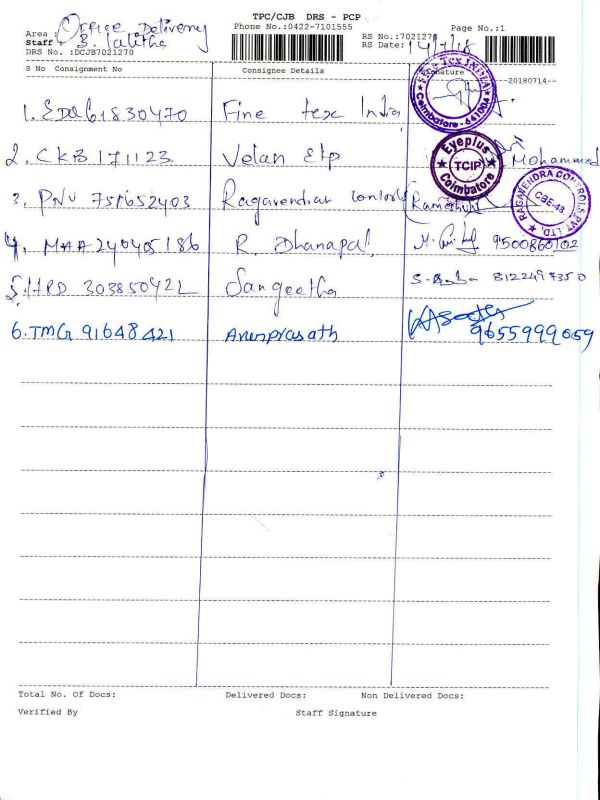 TPC/CJB DRS - PCP
Area : Office Delivery
Phone No.:0422-7101555
Page No.:1
Staff : B. Lalitha
RS No.:7021270
RS Date: 14/7/18
DRS No. :DCJB7021270
S No Consignment No Consignee Details Signature
--20180714--
1. EDQ61830470 Fine tex India
FINE TEX INDIA
Coimbatore - 641004
2. CKB 171123 Velan Etp Mohammed
Eyeplus
TCIP
Coimbatore
3. PNU 751652403 Ragavendiah controls
RAGAVENDRA CONTROLS PVT. LTD.
CBE-48
4. MAA240405186 R. Dhanapal 9500860102
5. HRD 303850422 Sangeetha 8122497350
6. TMG 91648421 Arunprasath 9655999059
Total No. Of Docs: Delivered Docs: Non Delivered Docs:
Verified By Staff Signature